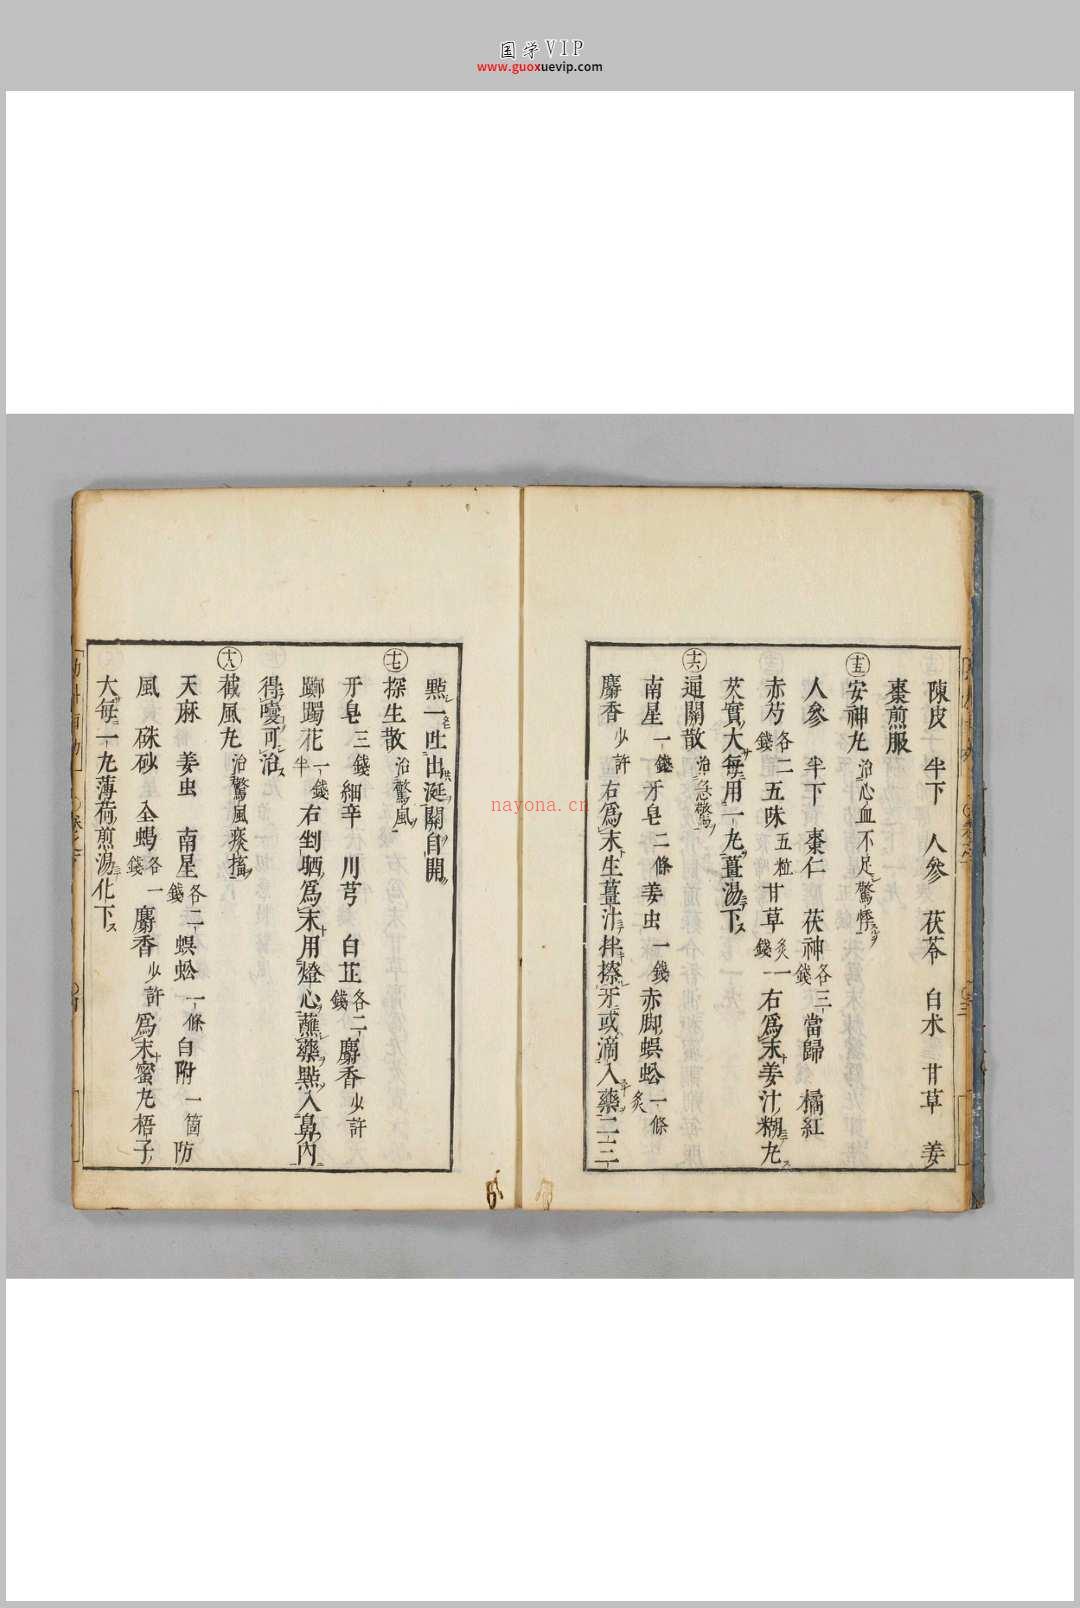 国学VIP
www.guoxuevip.com
陳皮 半下 人參 茯苓 白朮 甘草 姜
棗煎服
十五 安神丸 治心血不足驚悸
人參 半下 棗仁 茯神各三錢 當歸 橘紅
赤芍各二錢 五味五粒 甘草炙一錢 右爲末姜汁糊丸
芡實大每用一丸薑湯下
十六 通關散 治急驚
南星一錢 牙皂二條 姜虫一錢 赤脚蜈蚣一條炙
麝香少許 右爲末生薑汁拌擦牙或滴入藥二三
nayona.cn
點一吐出涎關自開
十七 探生散 治驚風
牙皂三錢 細辛 川芎 白芷各二錢 麝香少許
躑躅花一錢半 右剉晒爲末用燈心蘸藥點入鼻內
得嚏可治
十八 截風丸 治驚風痰搐
天麻 姜虫 南星各二錢 蜈蚣一條 白附一箇 防
風 硃砂 全蝎各一錢 麝香少許 爲末蜜丸梧子
大每一丸薄荷煎湯化下